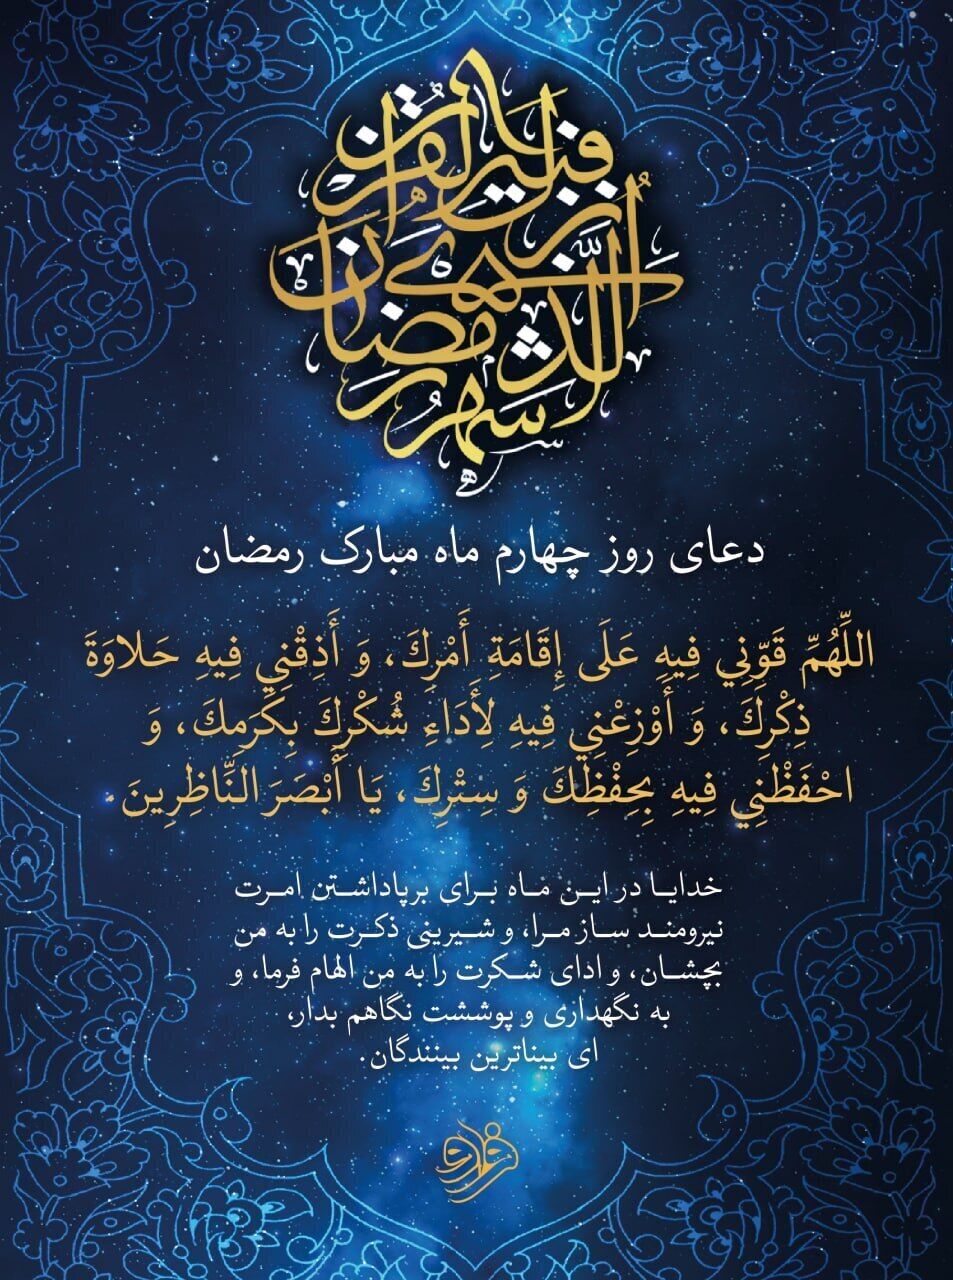 شهر رمضان الذي أنزل فيه القرآن
دعای روز چهارم ماه مبارک رمضان
اللَّهُمَّ قَوِّنِي فِيهِ عَلَى إِقَامَةِ أَمْرِكَ، وَ أَذِقْنِي فِيهِ حَلاوَةَ
ذِكْرِكَ، وَ أَوْزِعْنِي فِيهِ لِأَدَاءِ شُكْرِكَ بِكَرَمِكَ، وَ
احْفَظْنِي فِيهِ بِحِفْظِكَ وَ سِتْرِكَ، يَا أَبْصَرَ النَّاظِرِينَ.
خدایا در این ماه برای برپاداشتن امرت
نیرومند ساز مرا، و شیرینی ذکرت را به من
بچشان، و ادای شکرت را به من الهام فرما، و
به نگهداری و پوششت نگاهم بدار،
ای بیناترین بینندگان.